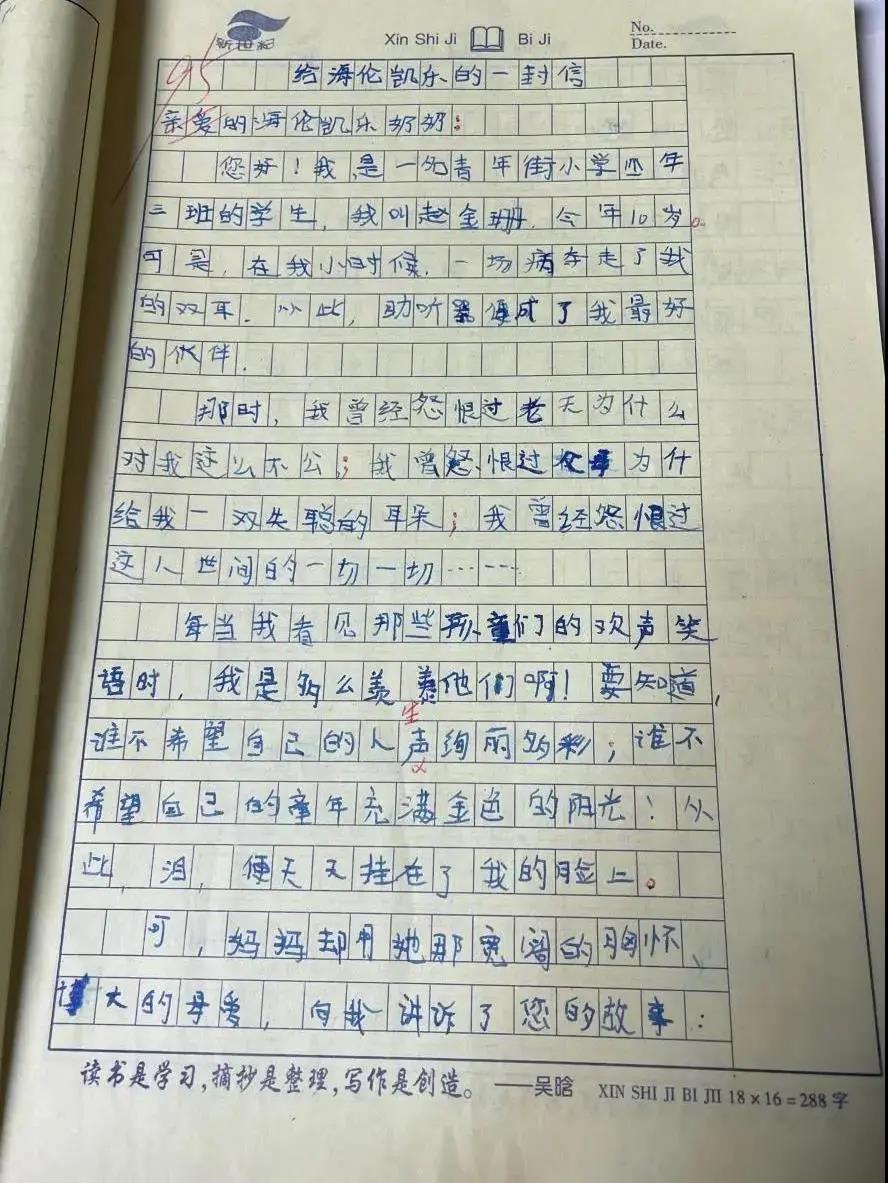 新世纪
Xin Shi Ji Bi Ji
No.
Date.
95
给海伦凯乐的一封信
亲爱的海伦凯乐奶奶：
您好！我是一名青年街小学四年
三班的学生，我叫赵金珊，今年10岁。
可是，在我小时候，一场病夺走了我
的双耳．从此，助听器便成了我最好
的伙伴．
那时，我曾经怨恨过老天为什么
对我这么不公；我曾怨恨过父母为什
给我一双失聪的耳朵；我曾经怨恨过
这人世间的一切一切……
每当我看见那些孩童们的欢声笑
语时，我是多么羡羡他们啊！要知道，
生
谁不希望自己的人声绚丽多彩；谁不
希望自己的童年充满金色的阳光！从
此，泪，便天天挂在了我的脸上。
可，妈妈却用她那宽阔的胸怀、
博大的母爱，向我讲诉了您的故事：
读书是学习，摘抄是整理，写作是创造。——吴晗 XIN SHI JI BI JI 18×16=288字